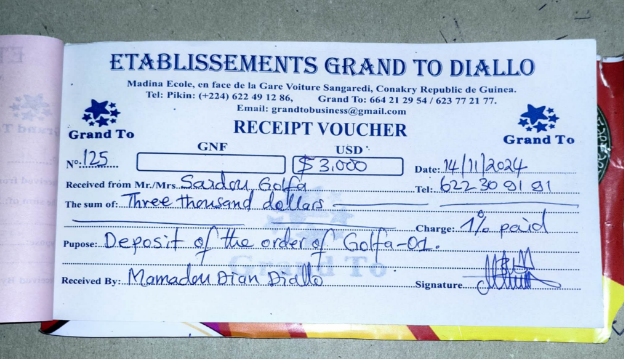 ETABLISSEMENTS GRAND TO DIALLO
Madina Ecole, en face de la Gare Voiture Sangaredi, Conakry Republic de Guinea.
Tel: Pikin: (+224) 622 49 12 86, Grand To: 664 21 29 54 / 623 77 21 77.
Email: grandtobusiness@gmail.com
Grand To
RECEIPT VOUCHER
Grand To
GNF USD
Nº: 125 $ 3,000 Date: 14/11/2024
Received from Mr./Mrs. Saidou Golfa Tel: 622 30 91 91
The sum of: Three thousand dollars
Charge: 1% paid
Pupose: Deposit of the order of Golfa-01.
Grand To
Received By: Mamadou Dian Diallo Signature